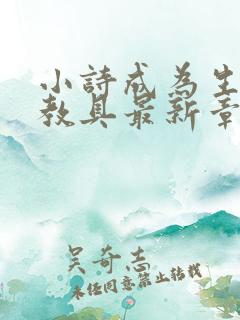 小詩成為生
教具最新章
吴奇志
未经同意禁止转载